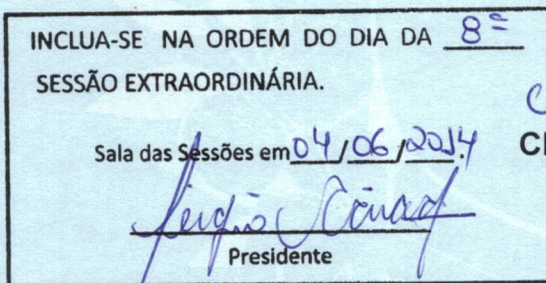 INCLUA-SE NA ORDEM DO DIA DA 8ª
SESSÃO EXTRAORDINÁRIA.
Sala das Sessões em 04/06/2014.
Sérgio
Presidente